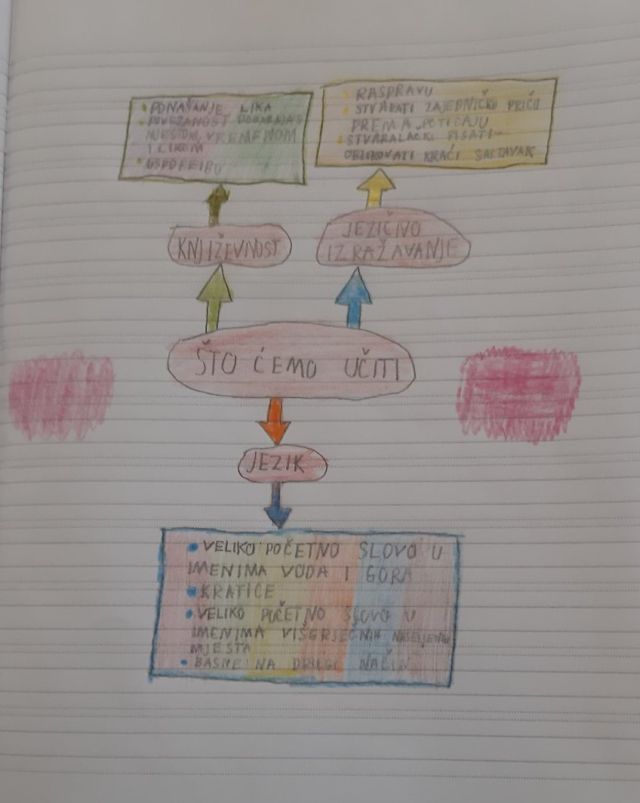 • PONAŠANJE LIKA
• POVEZANOST DOGAĐAJA
MJESTOM, VREMENOM
I LIKOM
• USPOREDBU
• RASPRAVU
• STVARATI ZAJEDNIČKU PRIČU
PREMA POTICAJU
• STVARALAČKI PISATI-
OBLIKOVATI KRAĆI SASTAVAK
KNJIŽEVNOST
JEZIČNO
IZRAŽAVANJE
ŠTO ĆEMO UČITI
JEZIK
• VELIKO POČETNO SLOVO U
IMENIMA VODA I GORA
• KRATICE
• VELIKO POČETNO SLOVO U
IMENIMA VIŠERJEČNIH NASELJENIH
MJESTA
• BASNE NA DRUGI NAČIN